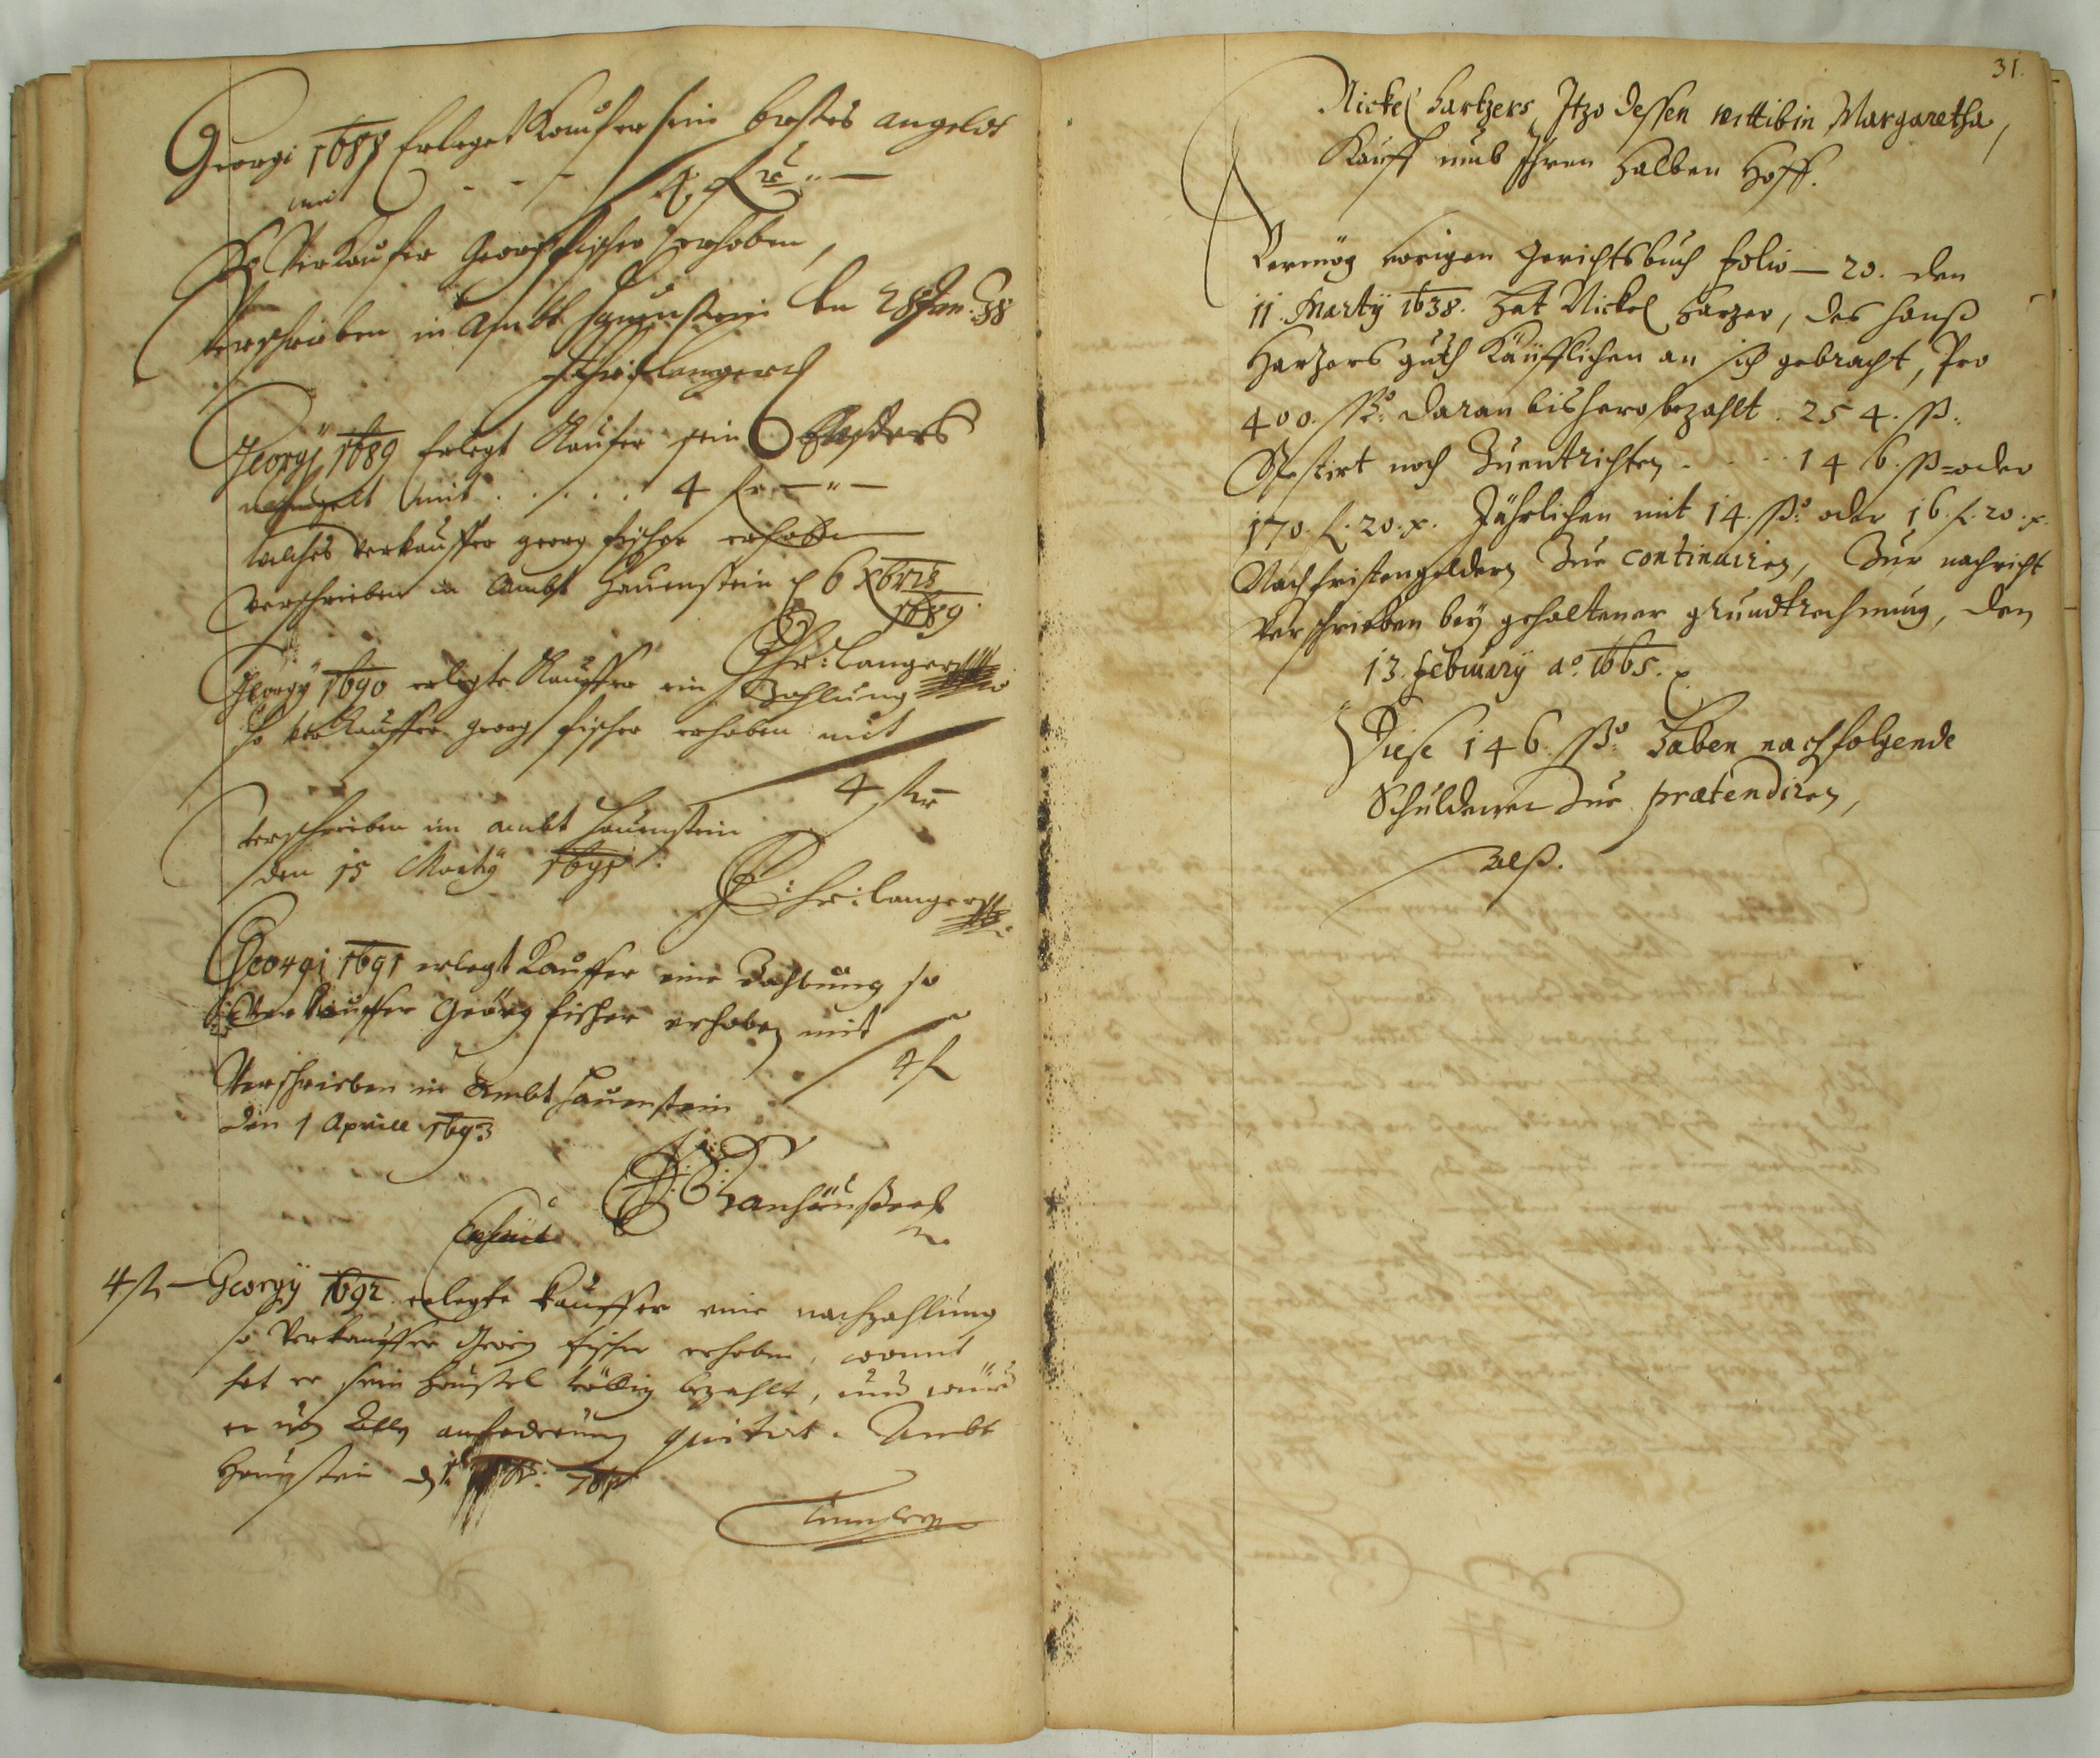 Georgi 1688 Erleget Kaufer sein erstes angeldt
mit - - - 4 f
So Verkaufer Georg fischer erhoben,
Verschrieben in Ambt Hauenstein den 28 Jan: 88
Chr: Langer
Georgÿ 1689 Erlegt Kaufer sein
mit . . . . . 4 fr — " —
welches verkauffer georg fischer erhoben
verschrieben in Ambt Hauenstein d 6 Xbris
1689
Chr: Langer
Georgÿ 1690 erlegte Kauffer ein Zahlung
so verkauffer georg fischer erhoben mit
4 fr
verschrieben im ambt Hauenstein
den 15 Martÿ 1691
Chr: Langer
Georgi 1691 erlegt Kauffer eine Zahlung so
Verkauffer Geörg fischer erhoben mit
4 fl
Verschrieben in Ambt Hauenstein
den 1 Aprill 1693
4 fl — Georgÿ 1692 erlegte kauffer eine nachzahlung
so Verkauffer Georg fischer erhoben, womit
hat er sein Heusel völlig bezahlt, und würd
er anforderung quitirt. Ambt
Hauenstein
31.
Nickel Hartzers, Itzo dessen wittibin Margaretha,
Kauff umb Ihren Halben Hoff.
Vermög vorigen Gerichtsbuch folio — 20. den
11. Martÿ 1638. Hat Nickel Harzer, des Hanß
Harzers guth Käufflichen an sich gebracht, Pro
400. ßo: daran bishero bezahlt. 254. ß.
Restirt noch Zuentrichten . . . . 146. ß= oder
170. f. 20. x. Jährlichen mit 14. ßo: oder 16. f. 20. x.
Nachfristengeldern Zue continuiren, Zur nachricht
Verschrieben beÿ gehaltener grundtrechnung, den
13. Februarÿ ao. 1665.
Diese 146. ßo: Haben nachfolgende
Schuldener Zue prætendiren,
Alß.